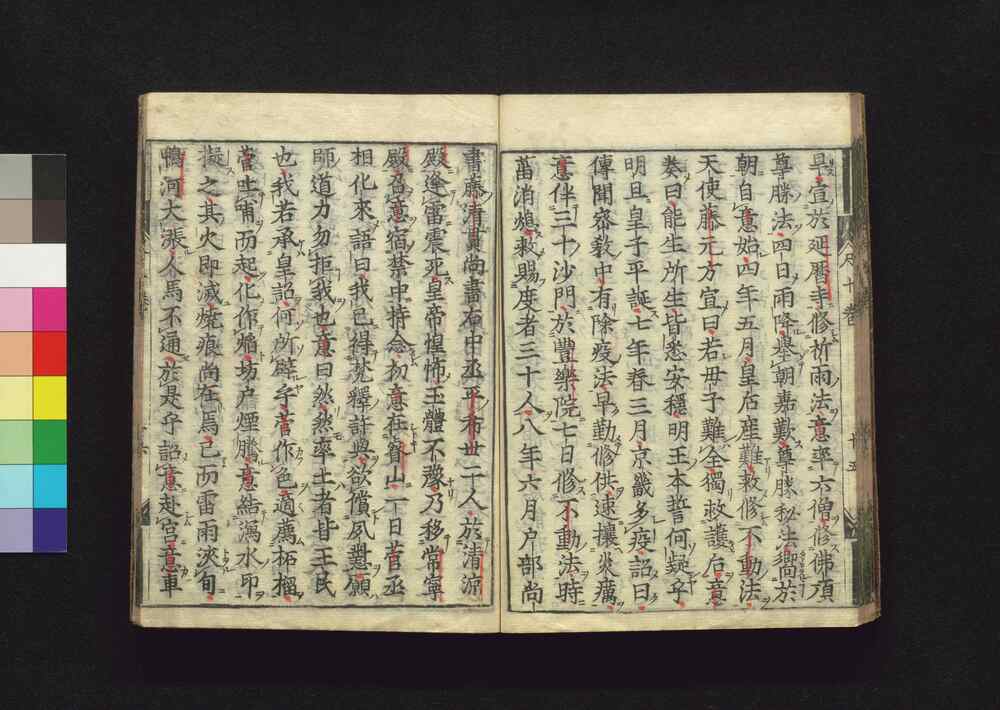 旱宜於延曆寺修祈雨法意率六僧修佛頂
尊勝法四日雨降擧朝嘉歎尊勝秘法嚮於
朝自意始四年五月皇后産難敕修不動法
天使藤元方宣曰若母子難全獨救護后意
奏曰能生所生皆悉安穩明王本誓何疑乎
明旦皇子平誕七年春三月京畿多疫詔曰
傳聞密敎中有除疫法早勤修供速攘災癘
意伴三十沙門於豐樂院七日修不動法時
菑消熄敕賜度者三十人八年六月戶部尚
書藤清貫尚書右中丞平希世二人於清凉
殿逢雷震死皇帝惶怖玉體不豫乃移常寧
殿召意宿禁中持念初意在睿山一日菅丞
相化來語曰我已得梵釋許與欲償夙懟願
師道力勿拒我也意曰然然率土者皆王民
也我若承皇詔何所辟乎菅作色適薦柘榴
菅吐哺而起化作焰坊戶煙騰意結灑水印
擬之其火即滅燒痕尚在焉已而雷雨浹旬
鴨河大張人馬不通於是乎詔意赴宮意車